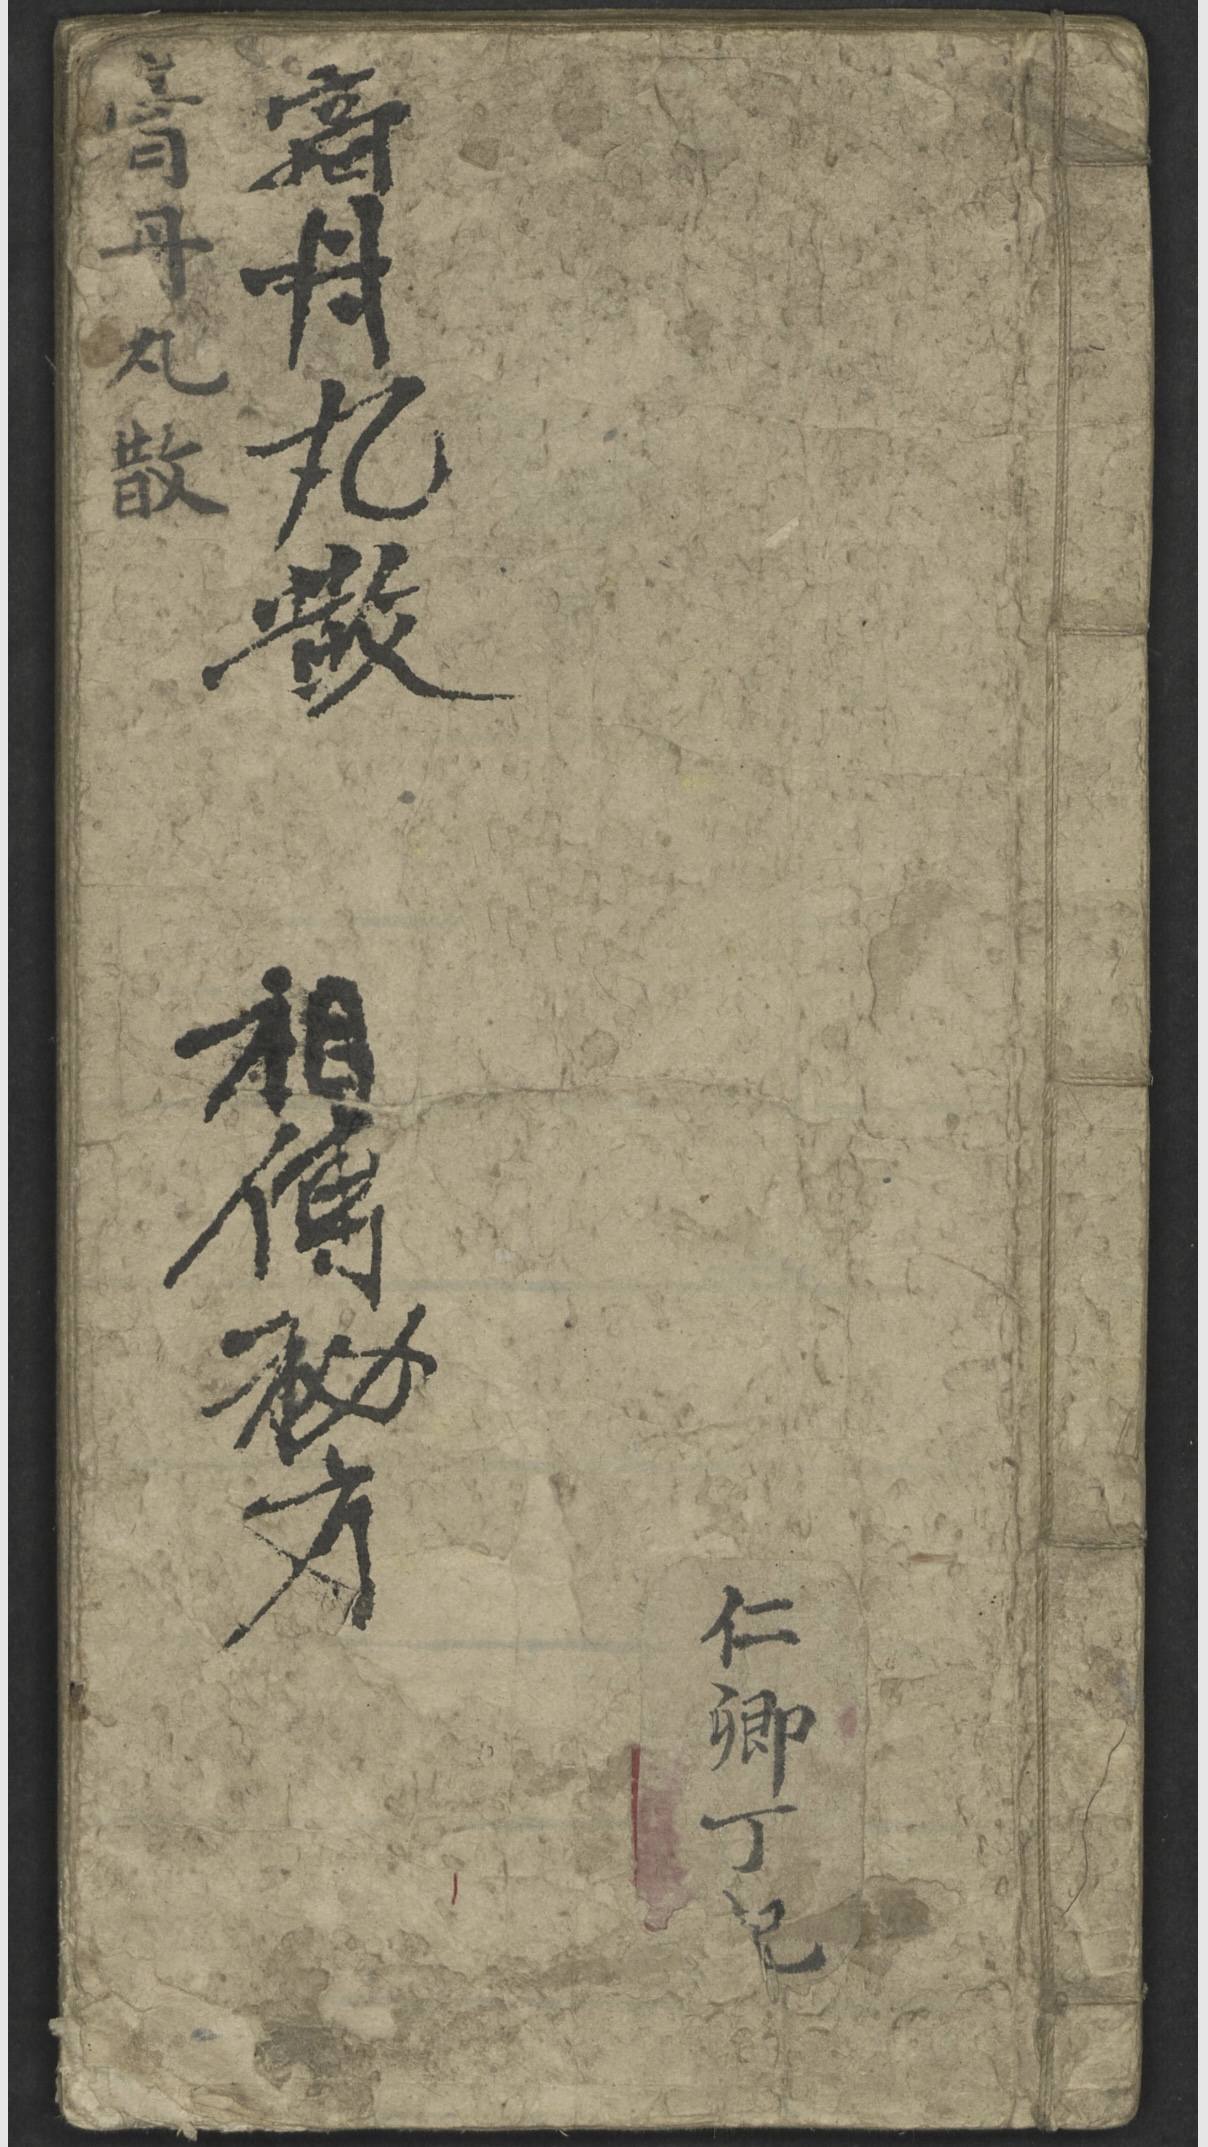 仁卿丁记
膏丹丸散
相傳秘方
膏丹丸散